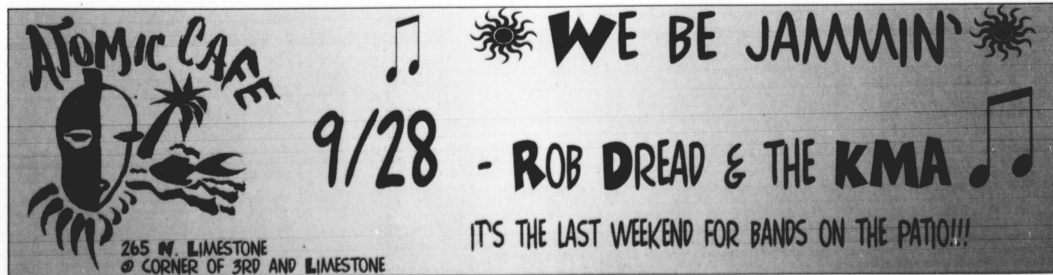 ATOMIC CAFE
265 N. LIMESTONE
@ CORNER OF 3RD AND LIMESTONE
WE BE JAMMIN'
9/28 - ROB DREAD & THE KMA
IT'S THE LAST WEEKEND FOR BANDS ON THE PATIO!!!